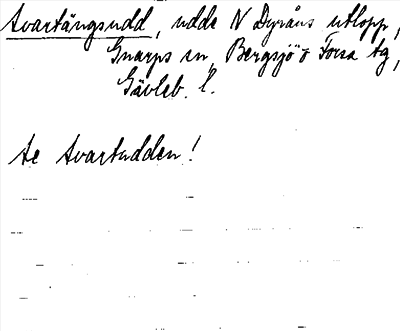 Svartängsudd, udde N Dyråns utlopp,
Gnarps sn, Bergsjö o Forsa tg,
Gävleb. l.
se Svartudden!